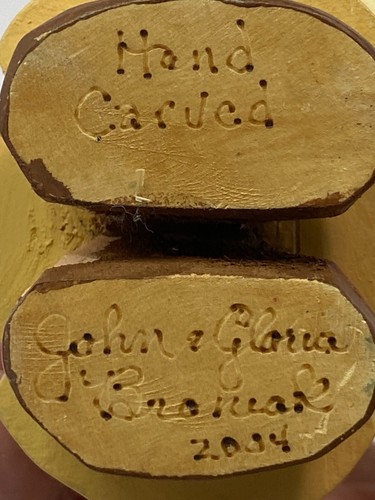 Hand
Carved
John & Gloria
Broniak
2004